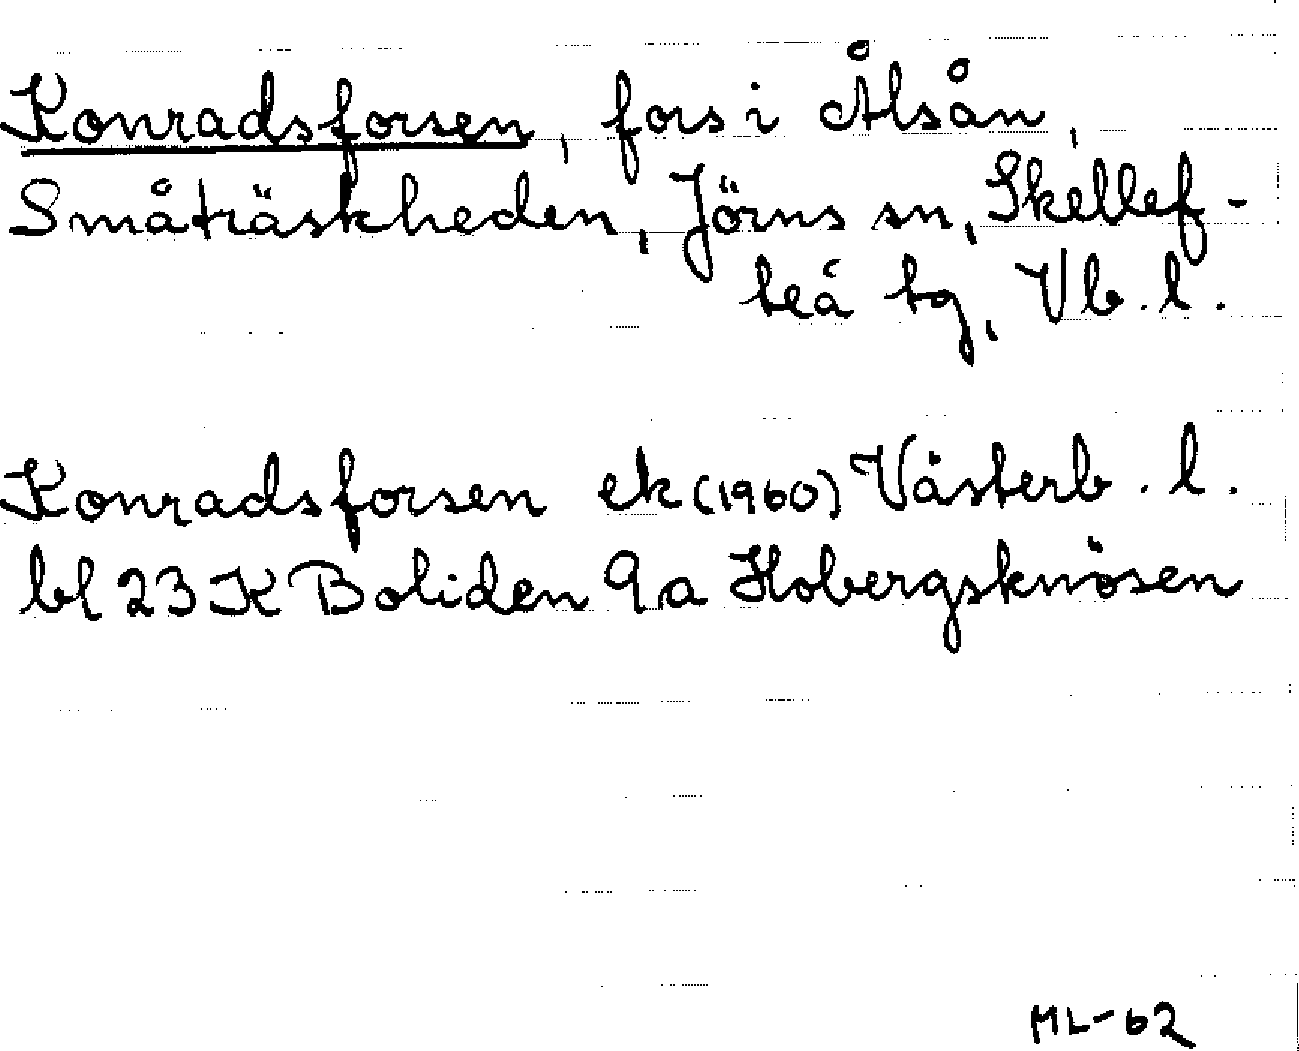 Konradsforsen, fors i Ålsån,
Småträskheden, Jörns sn, Skellef-
teå tg, Vb. l.
Konradsforsen ek (1960) Västerb. l.
bl 23 K Boliden 9 a Hobergsknösen
ML-62